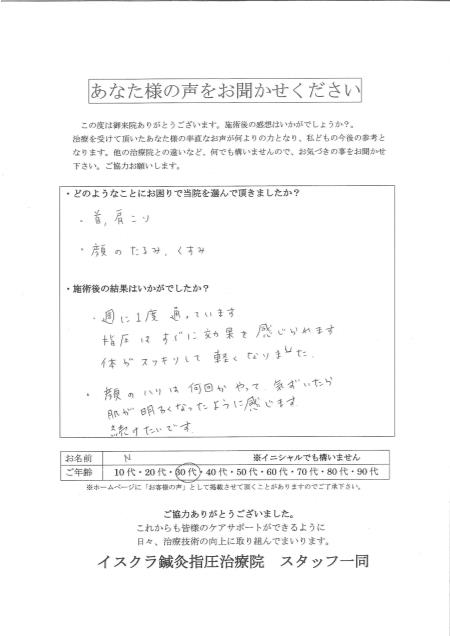 あなた様の声をお聞かせください
この度は御来院ありがとうございます。施術後の感想はいかがでしょうか？。
治療を受けて頂いたあなた様の率直なお声が何よりの力となり、私どもの今後の参考と
なります。他の治療院との違いなど、何でも構いませんので、お気づきの事をお聞かせ
下さい。ご協力お願いします。
・どのようなことにお困りで当院を選んで頂きましたか？
・首,肩こり
・顔のたるみ、くすみ
・施術後の結果はいかがでしたか？
・週に1度通っています
指圧はすぐに効果を感じられます
体がスッキリして軽くなりました.
・顔のハリは何回かやって気ずいたら
肌が明るくなったように感じます
続けたいです.
お名前 N ※イニシャルでも構いません
ご年齢 10代・20代・30代・40代・50代・60代・70代・80代・90代
※ホームページに「お客様の声」として掲載させて頂くことがありますのでご了承下さい。
ご協力ありがとうございました。
これからも皆様のケアサポートができるように
日々、治療技術の向上に取り組んでまいります。
イスクラ鍼灸指圧治療院 スタッフ一同